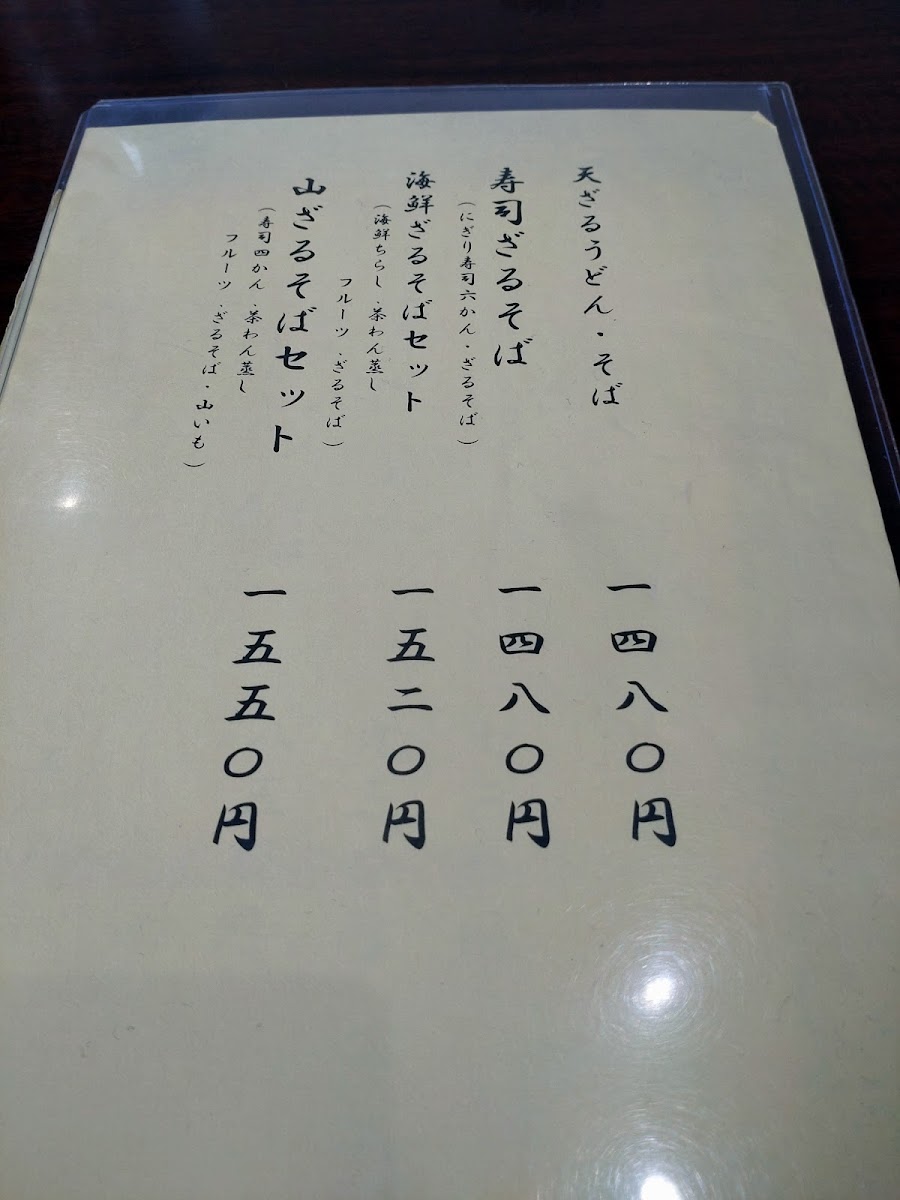 天ざるうどん・そば
一四八〇円
寿司ざるそば
(にぎり寿司六かん・ざるそば)
一四八〇円
海鮮ざるそばセット
(海鮮ちらし・茶わん蒸し
フルーツ・ざるそば)
一五二〇円
山ざるそばセット
(寿司四かん・茶わん蒸し
フルーツ・ざるそば・山いも)
一五五〇円